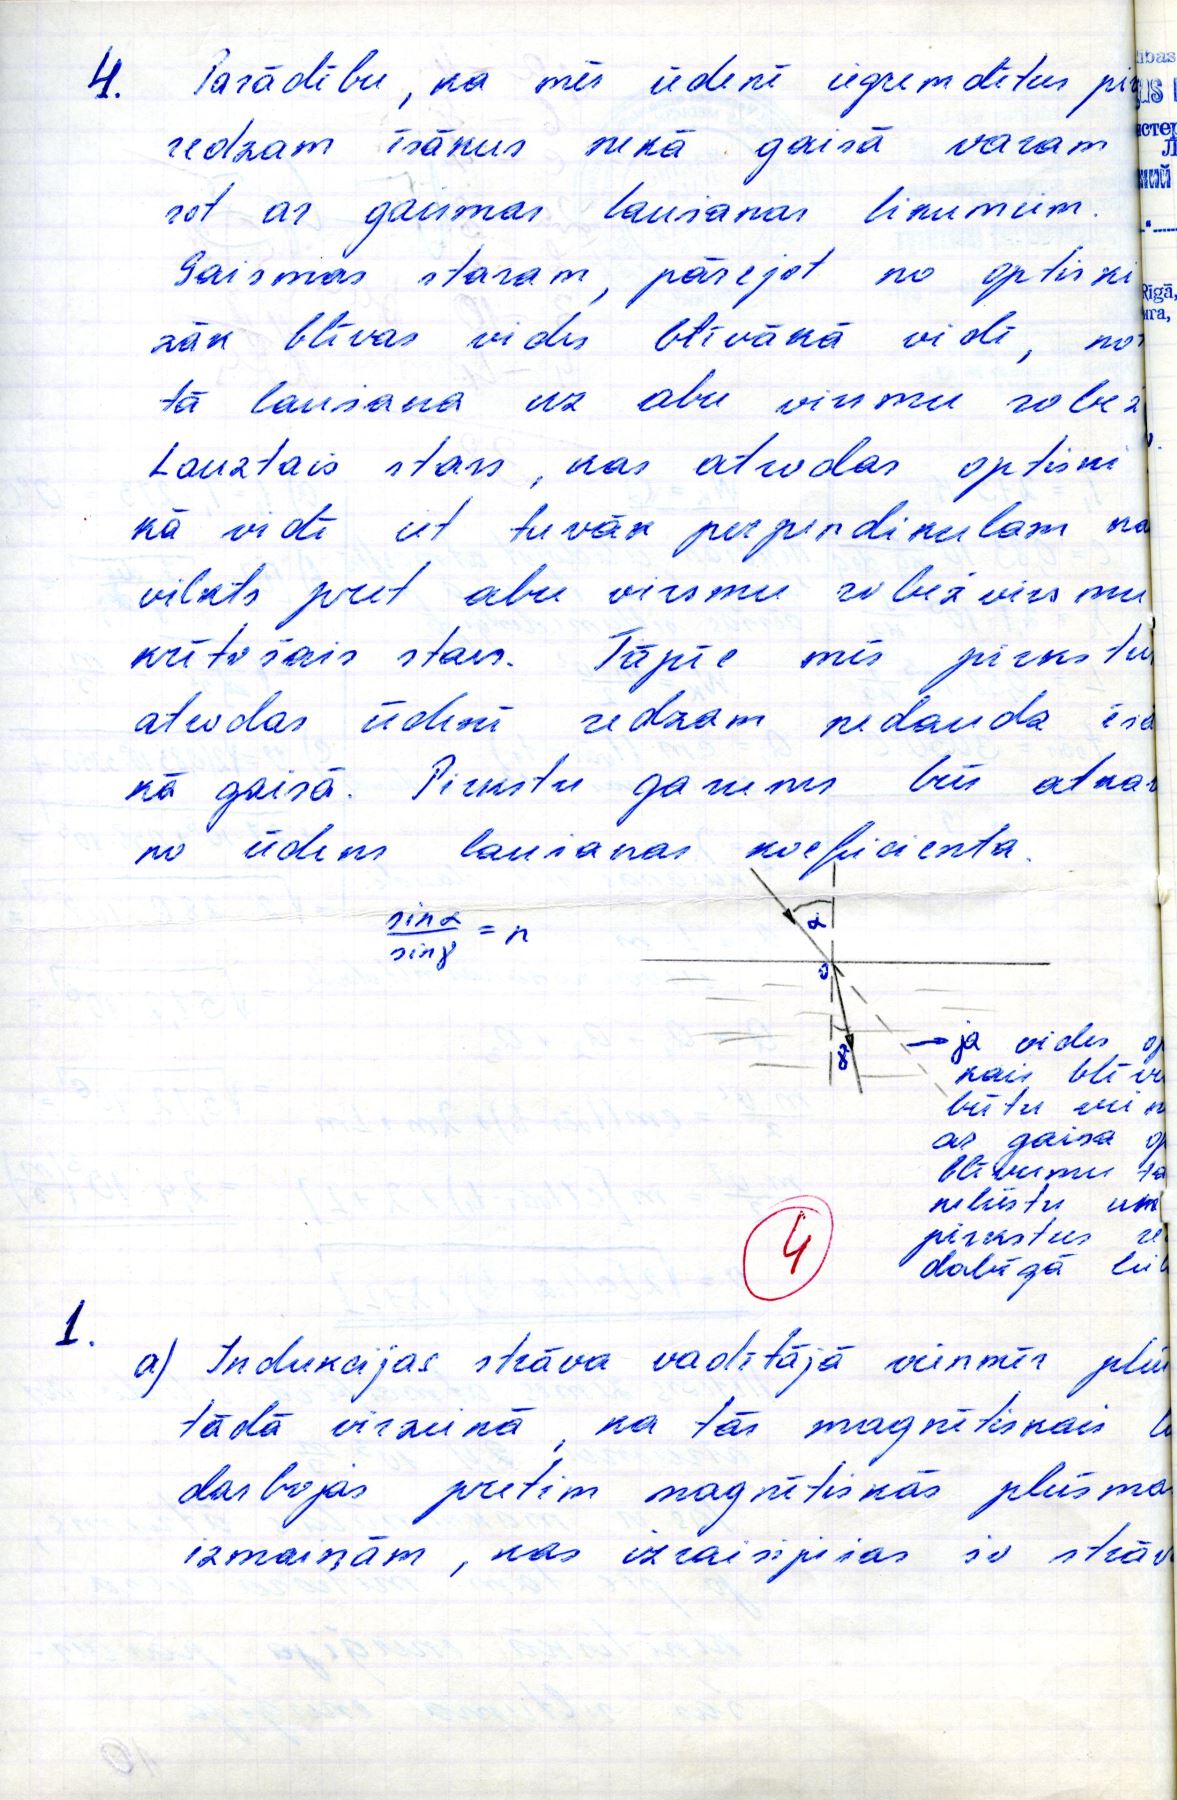 4. Parādību, ka mēs ūdenī iegremdētus pir
redzam īsākus nekā gaisā varam
rot ar gaismas laušanas likumiem.
Gaismas staram, pārejot no optiski
zāk blīvas vides blīvākā vidē, no
tā laušana uz abu virsmu robež
Lauztais stars, kas atrodas optiski
kā vidē iet tuvāk perpendikulam ka
vilkts pret abu virsmu robežvirsmu,
krītošais stars. Tāpēc mēs pirkstu
atrodas ūdenī redzam nedaudz īsā
kā gaisā. Pirkstu garums būs atkar
no ūdens laušanas koeficienta.
sinα / sinγ = n
α
0
γ
ja vides op
kais blīvu
būtu vien
ar gaisa op
blīvumu ta
nelūstu un
pirkstus re
dabīgā liel
4
1.
a) Indukcijas strāva vadītājā vienmēr plūs
tādā virzienā, ka tās magnētiskais l
darbojas pretim magnētiskās plūsmas
izmaiņām, kas izraisījušas šo strāv
ības
истер
Л
кий
Rīgā,
ига,